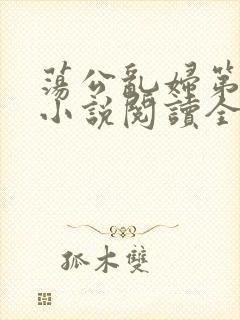 蕩公亂婦第
小說閱讀全
孤木雙